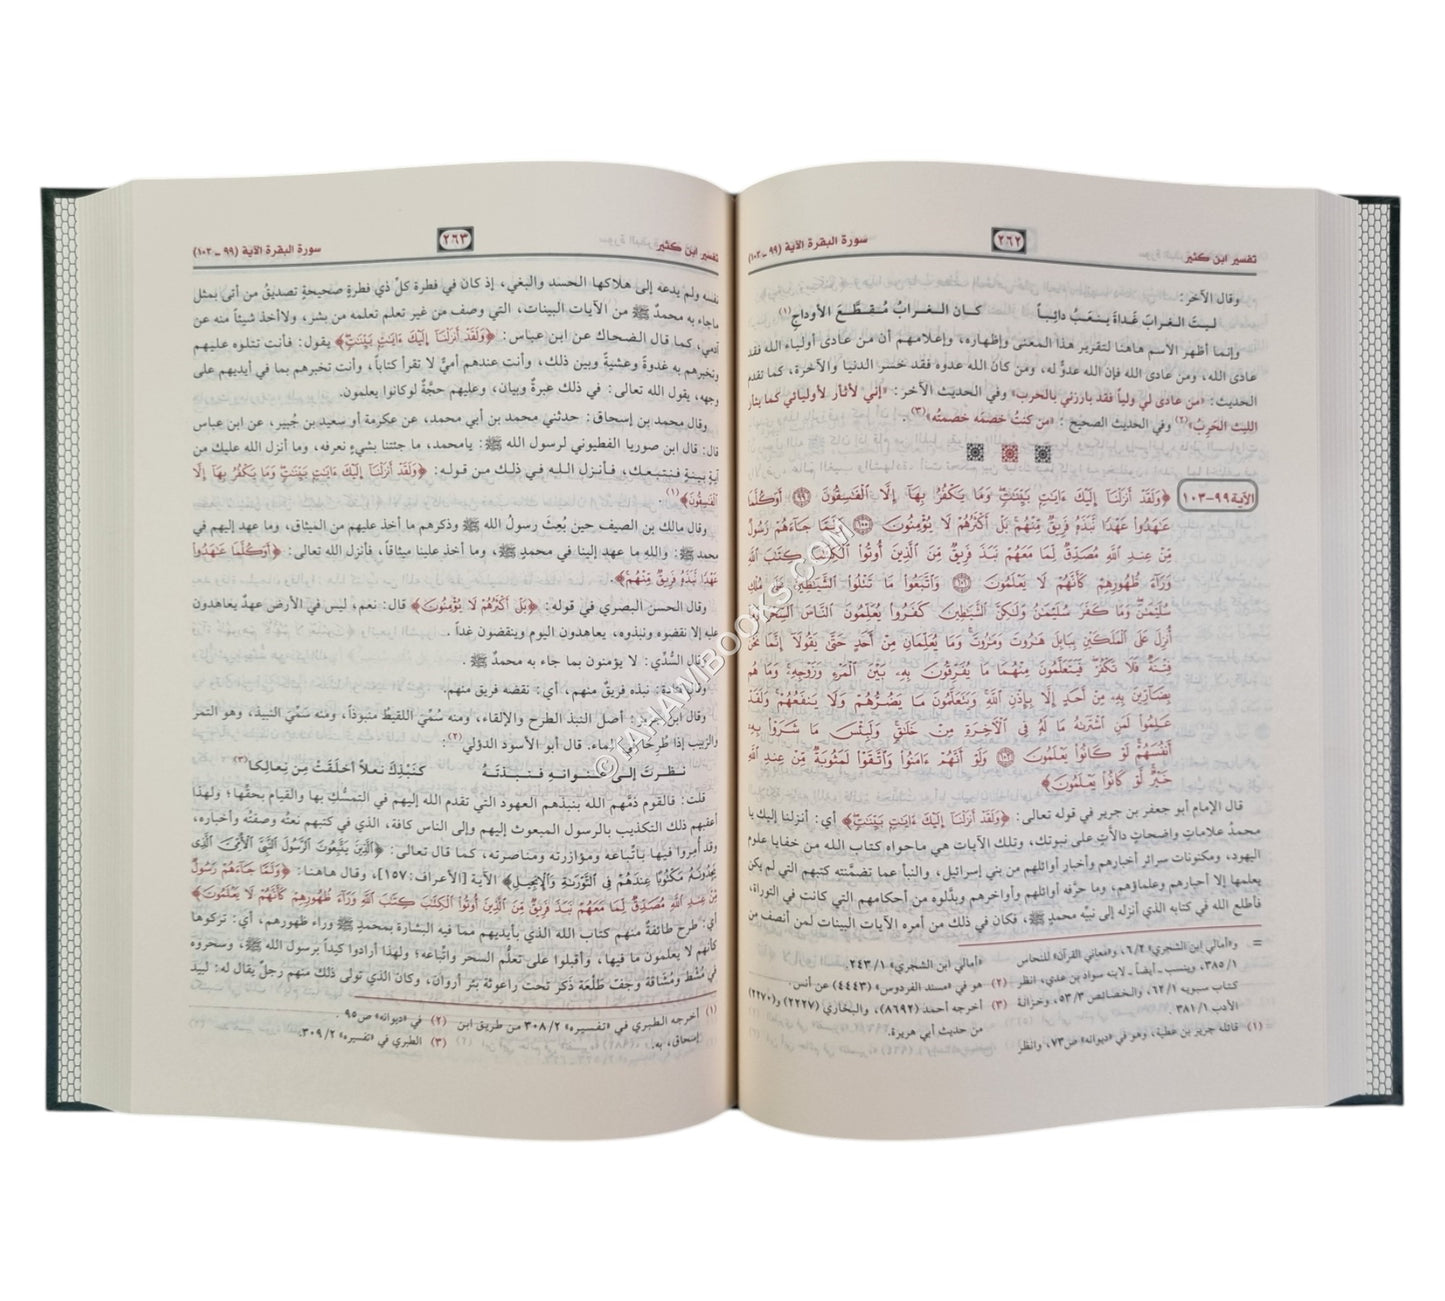 تفسير ابن كثير
٢٦٢
سورة البقرة الآية (٩٩ - ١٠٣)
وقال الآخر:
ليتَ الغرابَ غَداةَ ينعَبُ دائِباً كان الغرابُ مُقطَّعَ الأوداجِ(١)
وإنما أظهر الاسم هاهنا لتقرير هذا المعنى وإظهاره، وإعلامهم أن من عادى أولياء الله فقد
عادى الله، ومن عادى الله فإن الله عدوٌّ له، ومن كان الله عدوه فقد خسر الدنيا والآخرة، كما تقدم
الحديث: «من عادى لي ولياً فقد بارزني بالحرب» وفي الحديث الآخر: «إني لأثأر لأوليائي كما يثأر
الليث الحَرِبُ»(٢) وفي الحديث الصحيح: «من كنتُ خصمَه خصمتُه»(٣).
الآية ٩٩-١٠٣
﴿وَلَقَدْ أَنزَلْنَآ إِلَيْكَ ءَايَٰتٍۭ بَيِّنَٰتٍۢ وَمَا يَكْفُرُ بِهَآ إِلَّا ٱلْفَٰسِقُونَ ٩٩ أَوَكُلَّمَا
عَٰهَدُوا۟ عَهْدًا نَّبَذَهُۥ فَرِيقٌ مِّنْهُم ۚ بَلْ أَكْثَرُهُمْ لَا يُؤْمِنُونَ ١٠٠ وَلَمَّا جَآءَهُمْ رَسُولٌ
مِّنْ عِندِ ٱللَّهِ مُصَدِّقٌ لِّمَا مَعَهُمْ نَبَذَ فَرِيقٌ مِّنَ ٱلَّذِينَ أُوتُوا۟ ٱلْكِتَٰبَ كِتَٰبَ ٱللَّهِ
وَرَآءَ ظُهُورِهِمْ كَأَنَّهُمْ لَا يَعْلَمُونَ ١٠١ وَٱتَّبَعُوا۟ مَا تَتْلُوا۟ ٱلشَّيَٰطِينُ عَلَىٰ مُلْكِ
سُلَيْمَٰنَ ۖ وَمَا كَفَرَ سُلَيْمَٰنُ وَلَٰكِنَّ ٱلشَّيَٰطِينَ كَفَرُوا۟ يُعَلِّمُونَ ٱلنَّاسَ ٱلسِّحْرَ وَمَآ
أُنزِلَ عَلَى ٱلْمَلَكَيْنِ بِبَابِلَ هَٰرُوتَ وَمَٰرُوتَ ۚ وَمَا يُعَلِّمَانِ مِنْ أَحَدٍ حَتَّىٰ يَقُولَآ إِنَّمَا نَحْنُ
فِتْنَةٌ فَلَا تَكْفُرْ ۖ فَيَتَعَلَّمُونَ مِنْهُمَا مَا يُفَرِّقُونَ بِهِۦ بَيْنَ ٱلْمَرْءِ وَزَوْجِهِۦ ۚ وَمَا هُم
بِضَآرِّينَ بِهِۦ مِنْ أَحَدٍ إِلَّا بِإِذْنِ ٱللَّهِ ۚ وَيَتَعَلَّمُونَ مَا يَضُرُّهُمْ وَلَا يَنفَعُهُمْ ۚ وَلَقَدْ
عَلِمُوا۟ لَمَنِ ٱشْتَرَىٰهُ مَا لَهُۥ فِى ٱلْءَاخِرَةِ مِنْ خَلَٰقٍ ۚ وَلَبِئْسَ مَا شَرَوْا۟ بِهِۦٓ
أَنفُسَهُمْ ۚ لَوْ كَانُوا۟ يَعْلَمُونَ ١٠٢ وَلَوْ أَنَّهُمْ ءَامَنُوا۟ وَٱتَّقَوْا۟ لَمَثُوبَةٌ مِّنْ عِندِ ٱللَّهِ
خَيْرٌ ۖ لَّوْ كَانُوا۟ يَعْلَمُونَ﴾
قال الإمام أبو جعفر بن جرير في قوله تعالى: ﴿وَلَقَدْ أَنزَلْنَآ إِلَيْكَ ءَايَٰتٍۭ بَيِّنَٰتٍ﴾ أي: أنزلنا إليك يا
محمدُ علاماتٍ واضحاتٍ دالَّاتٍ على نبوتك، وتلك الآيات هي ماحواه كتاب الله من خفايا علوم
اليهود، ومكنونات سرائر أخبارهم وأخبار أوائلهم من بني إسرائيل، والنبأ عما تضمَّنته كتبهم التي لم يكن
يعلمها إلا أحبارهم وعلماؤهم، وما حرَّفه أوائلهم وأواخرهم وبدَّلوه من أحكامهم التي كانت في التوراة،
فأطلع الله في كتابه الذي أنزله إلى نبيِّه محمدٍ ﷺ، فكان في ذلك من أمره الآيات البينات لمن أنصف من
= و«أمالي ابن الشجري» ٦/٢، و«معاني القرآن» للنحاس
٣٨٥/١، وينسب ـ أيضاً ـ لابنه سواد بن عدي، انظر
كتاب سيبويه ٦٢/١، والخصائص ٥٣/٣، وخزانة
الأدب ٣٨١/١.
(١) قائله جرير بن عطية، وهو في «ديوانه» ص٧٣، وانظر
«أمالي ابن الشجري» ٢٤٣/١.
(٢) هو في «مسند الفردوس» (٤٤٤٣) عن أنس.
(٣) أخرجه أحمد (٨٦٩٢)، والبخاري (٢٢٢٧) و(٢٢٧٠)
من حديث أبي هريرة.
تفسير ابن كثير
٢٦٣
سورة البقرة الآية (٩٩ - ١٠٣)
نفسه ولم يدعه إلى هلاكها الحسد والبغي، إذ كان في فطرة كلِّ ذي فطرةٍ صحيحةٍ تصديقُ من أتى بمثل
ماجاء به محمدٌ ﷺ من الآيات البينات، التي وصف من غير تعلم تعلمه من بشر، ولاأخذ شيئاً منه عن
آدمي، كما قال الضحاك عن ابن عباس: ﴿وَلَقَدْ أَنزَلْنَآ إِلَيْكَ ءَايَٰتٍۭ بَيِّنَٰتٍ﴾ يقول: فأنت تتلوه عليهم
وتخبرهم به غدوةً وعشيةً وبين ذلك، وأنت عندهم أميٌّ لا تقرأ كتاباً، وأنت تخبرهم بما في أيديهم على
وجهه، يقول الله تعالى: في ذلك عبرةٌ وبيان، وعليهم حجَّةٌ لوكانوا يعلمون.
وقال محمد بن إسحاق: حدثني محمد بن أبي محمد، عن عكرمة أو سعيد بن جُبير، عن ابن عباس
قال: قال ابن صوريا الفطيوني لرسول الله ﷺ: يامحمد، ما جئتنا بشيءٍ نعرفه، وما أنزل الله عليك من
آيةٍ بينةٍ فنتبعك، فأنزل الله في ذلك من قوله: ﴿وَلَقَدْ أَنزَلْنَآ إِلَيْكَ ءَايَٰتٍۭ بَيِّنَٰتٍۢ وَمَا يَكْفُرُ بِهَآ إِلَّا
ٱلْفَٰسِقُونَ﴾(١).
وقال مالك بن الصيف حين بُعِثَ رسولُ الله ﷺ وذكرهم ما أخذ عليهم من الميثاق، وما عهد إليهم في
محمد ﷺ: واللهِ ما عهد إلينا في محمدٍ ﷺ، وما أخذ علينا ميثاقاً، فأنزل الله تعالى: ﴿أَوَكُلَّمَا عَٰهَدُوا۟
عَهْدًا نَّبَذَهُۥ فَرِيقٌ مِّنْهُم﴾.
وقال الحسن البصري في قوله: ﴿بَلْ أَكْثَرُهُمْ لَا يُؤْمِنُونَ﴾ قال: نعم، ليس في الأرض عهدٌ يعاهدون
عليه إلا نقضوه ونبذوه، يعاهدون اليوم وينقضون غداً.
وقال السُّدِّي: لا يؤمنون بما جاء به محمدٌ ﷺ.
وقال قتادة: نبذه فريقٌ منهم، أي: نقضه فريق منهم.
وقال ابن جرير: أصل النبذ الطرح والإلقاء، ومنه سُمِّيَ اللقيطُ منبوذاً، ومنه سَمِّيَ النبيذ، وهو التمر
والزبيب إذا طُرِحَا في الماء. قال أبو الأسود الدؤلي(٢):
نظرتَ إلى عنوانهِ فنبذتَهُ كنَبْذِكَ نَعلاً أخلَقَتْ مِن نِعالِكا(٣)
قلت: فالقوم ذمَّهم الله بنبذهم العهود التي تقدم الله إليهم في التمسُّكِ بها والقيام بحقِّها؛ ولهذا
أعقبهم ذلك التكذيب بالرسول المبعوث إليهم وإلى الناس كافة، الذي في كتبهم نعتُه وصفتُه وأخباره،
وقد أُمِروا فيها باتِّباعه ومؤازرته ومناصرته، كما قال تعالى: ﴿ٱلَّذِينَ يَتَّبِعُونَ ٱلرَّسُولَ ٱلنَّبِىَّ ٱلْأُمِّىَّ ٱلَّذِى
يَجِدُونَهُۥ مَكْتُوبًا عِندَهُمْ فِى ٱلتَّوْرَىٰةِ وَٱلْإِنجِيلِ﴾ الآية [الأعراف: ١٥٧]، وقال هاهنا: ﴿وَلَمَّا جَآءَهُمْ رَسُولٌ
مِّنْ عِندِ ٱللَّهِ مُصَدِّقٌ لِّمَا مَعَهُمْ نَبَذَ فَرِيقٌ مِّنَ ٱلَّذِينَ أُوتُوا۟ ٱلْكِتَٰبَ كِتَٰبَ ٱللَّهِ وَرَآءَ ظُهُورِهِمْ كَأَنَّهُمْ لَا يَعْلَمُونَ﴾
أي: طرح طائفةٌ منهم كتاب الله الذي بأيديهم مما فيه البشارة بمحمدٍ ﷺ وراء ظهورهم، أي: تركوها
كأنهم لا يعلمون ما فيها، وأقبلوا على تعلُّم السحر واتِّباعه؛ ولهذا أرادوا كيداً برسول الله ﷺ، وسحروه
في مُشْط ومُشَاقة وجُفِّ طَلْعَة ذَكَر تحت راعوثة بئر أروان، وكان الذي تولى ذلك منهم رجلٌ يقال له: لبيد
(١) أخرجه الطبري في «تفسيره» ٣٠٨/٢ من طريق ابن
إسحاق، به.
(٢) في «ديوانه» ص٩٥.
(٣) الطبري في «تفسيره» ٣٠٩/٢.
© TAHAMIBOOKS.COM